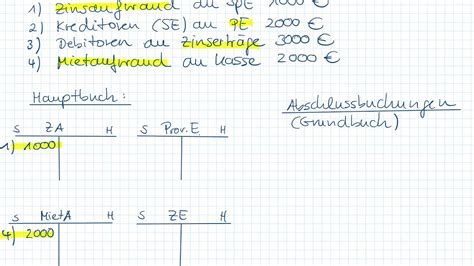 1) Zinsaufwand an SpE 1000 €
2) Kreditoren (SE) an PE 2000 €
3) Debitoren an Zinserträge 3000 €
4) Mietaufwand an Kasse 2000 €
Hauptbuch:
Abschlussbuchungen
(Grundbuch)
S ZA H S Prov.E. H
1) 1000
S MietA H S ZE H
4) 2000